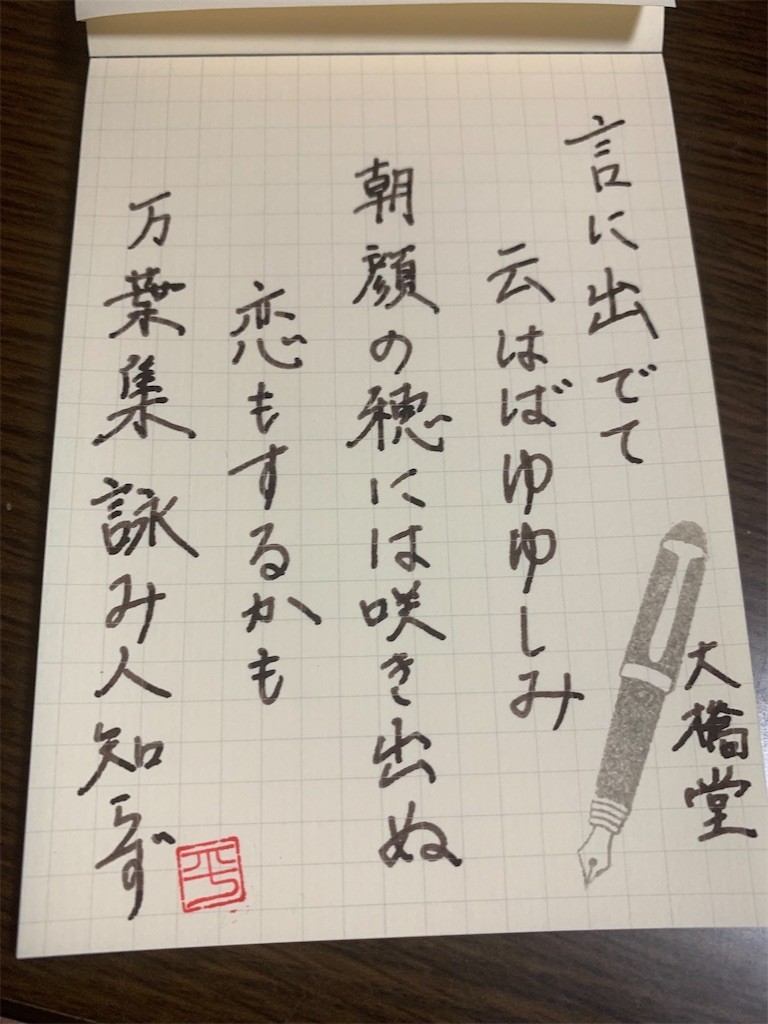 言に出でて
云はばゆゆしみ
朝顔の穂には咲き出ぬ
恋もするかも
万葉集 詠み人知らず
大橋堂